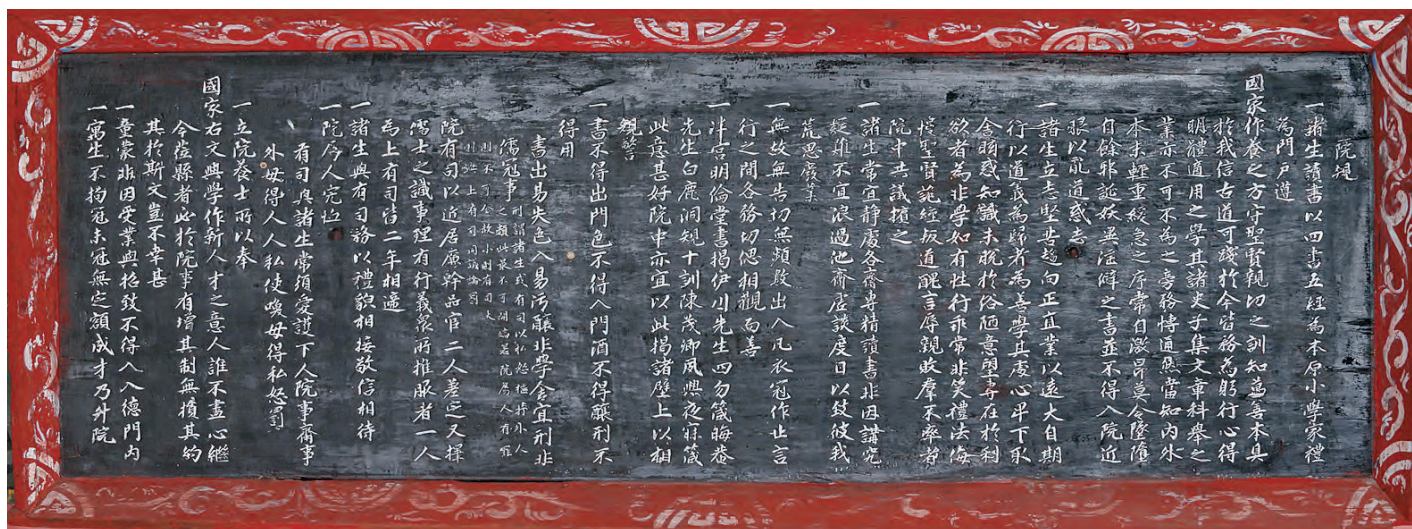 院規
一諸生讀書以四書五經為本原小學家禮
為門戶遵
國家作養之方守聖賢親切之訓知萬善本具
於我信古道可踐於今皆務為躬行心得
明體適用之學其諸史子集文章科舉之
業亦不可不為之旁務博通然當知內外
本末輕重緩急之序常自激昂莫令墜墮
自餘邪誕妖異淫僻之書並不得入院近
眼以亂道惑志
一諸生立志堅苦趨向正直業以遠大自期
行以道義為歸者為善學其處心卑下取
舍眩惑知識未脫於俗陋意望專在於利
欲者為非學如有性行乖常非笑禮法侮
慢聖賢詭經叛道醜言辱親敗羣不率者
院中共議擯之
一諸生常宜靜處各齋專精讀書非因講究
疑難不宜浪過他齋虛談度日以致彼我
荒思廢業
一無故無告切無頻數出入凡衣冠作止言
行之間各務切偲相觀而善
一泮宮明倫堂書揭伊川先生四勿箴晦菴
先生白鹿洞規十訓陳茂卿夙興夜寐箴
此意甚好院中亦宜以此揭諸壁上以相
規警
一書不得出門色不得入門酒不得釀刑不
得用
書出易失色入易污釀非學舍宜刑非
儒冠事 刑謂諸生或有司以私怒捶打外人
之類此最不可開端若院屬人有罪
則不可全赦小則有司大
則與上有司同議論罰
院有司以近居廩幹品官二人差定又擇
儒士之識事理有行義衆所推服者一人
為上有司皆二年相遞
一諸生與有司務以禮貌相接敬信相待
一院屬人完恤
有司與諸生常須愛護下人院事齋事
外毋得人人私使喚毋得私怒罰
一立院養士所以奉
國家右文興學作新人才之意人誰不盡心繼
今莅縣者必於院事有增其制無損其約
其於斯文豈不幸甚
一童蒙非因受業與招致不得入入德門內
一寓生不拘冠未冠無定額成才乃升院